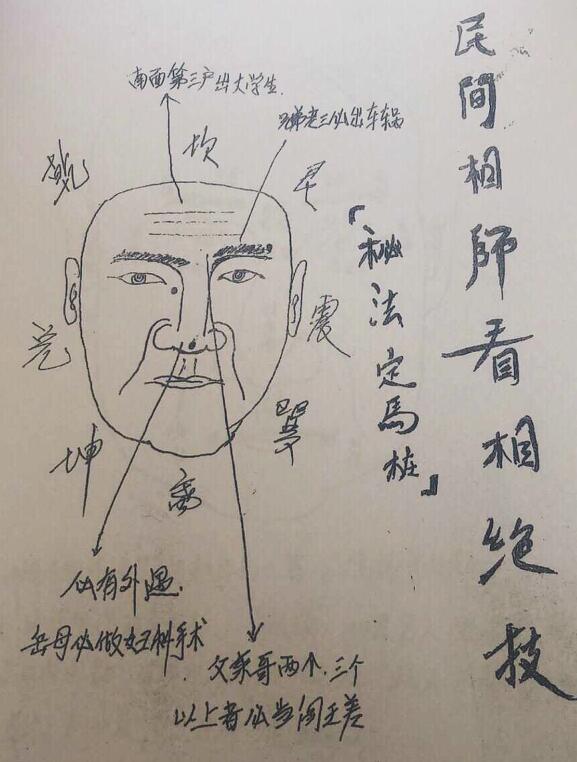 民间相師看相绝技
「秘法定馬桩」
南面第三户出大学生.
兄弟老三必出车祸
乾
坎
艮
兑
震
坤
離
巽
必有外遇.
岳母必做妇科手术
父亲哥两个.三个
以上者必当阎王差